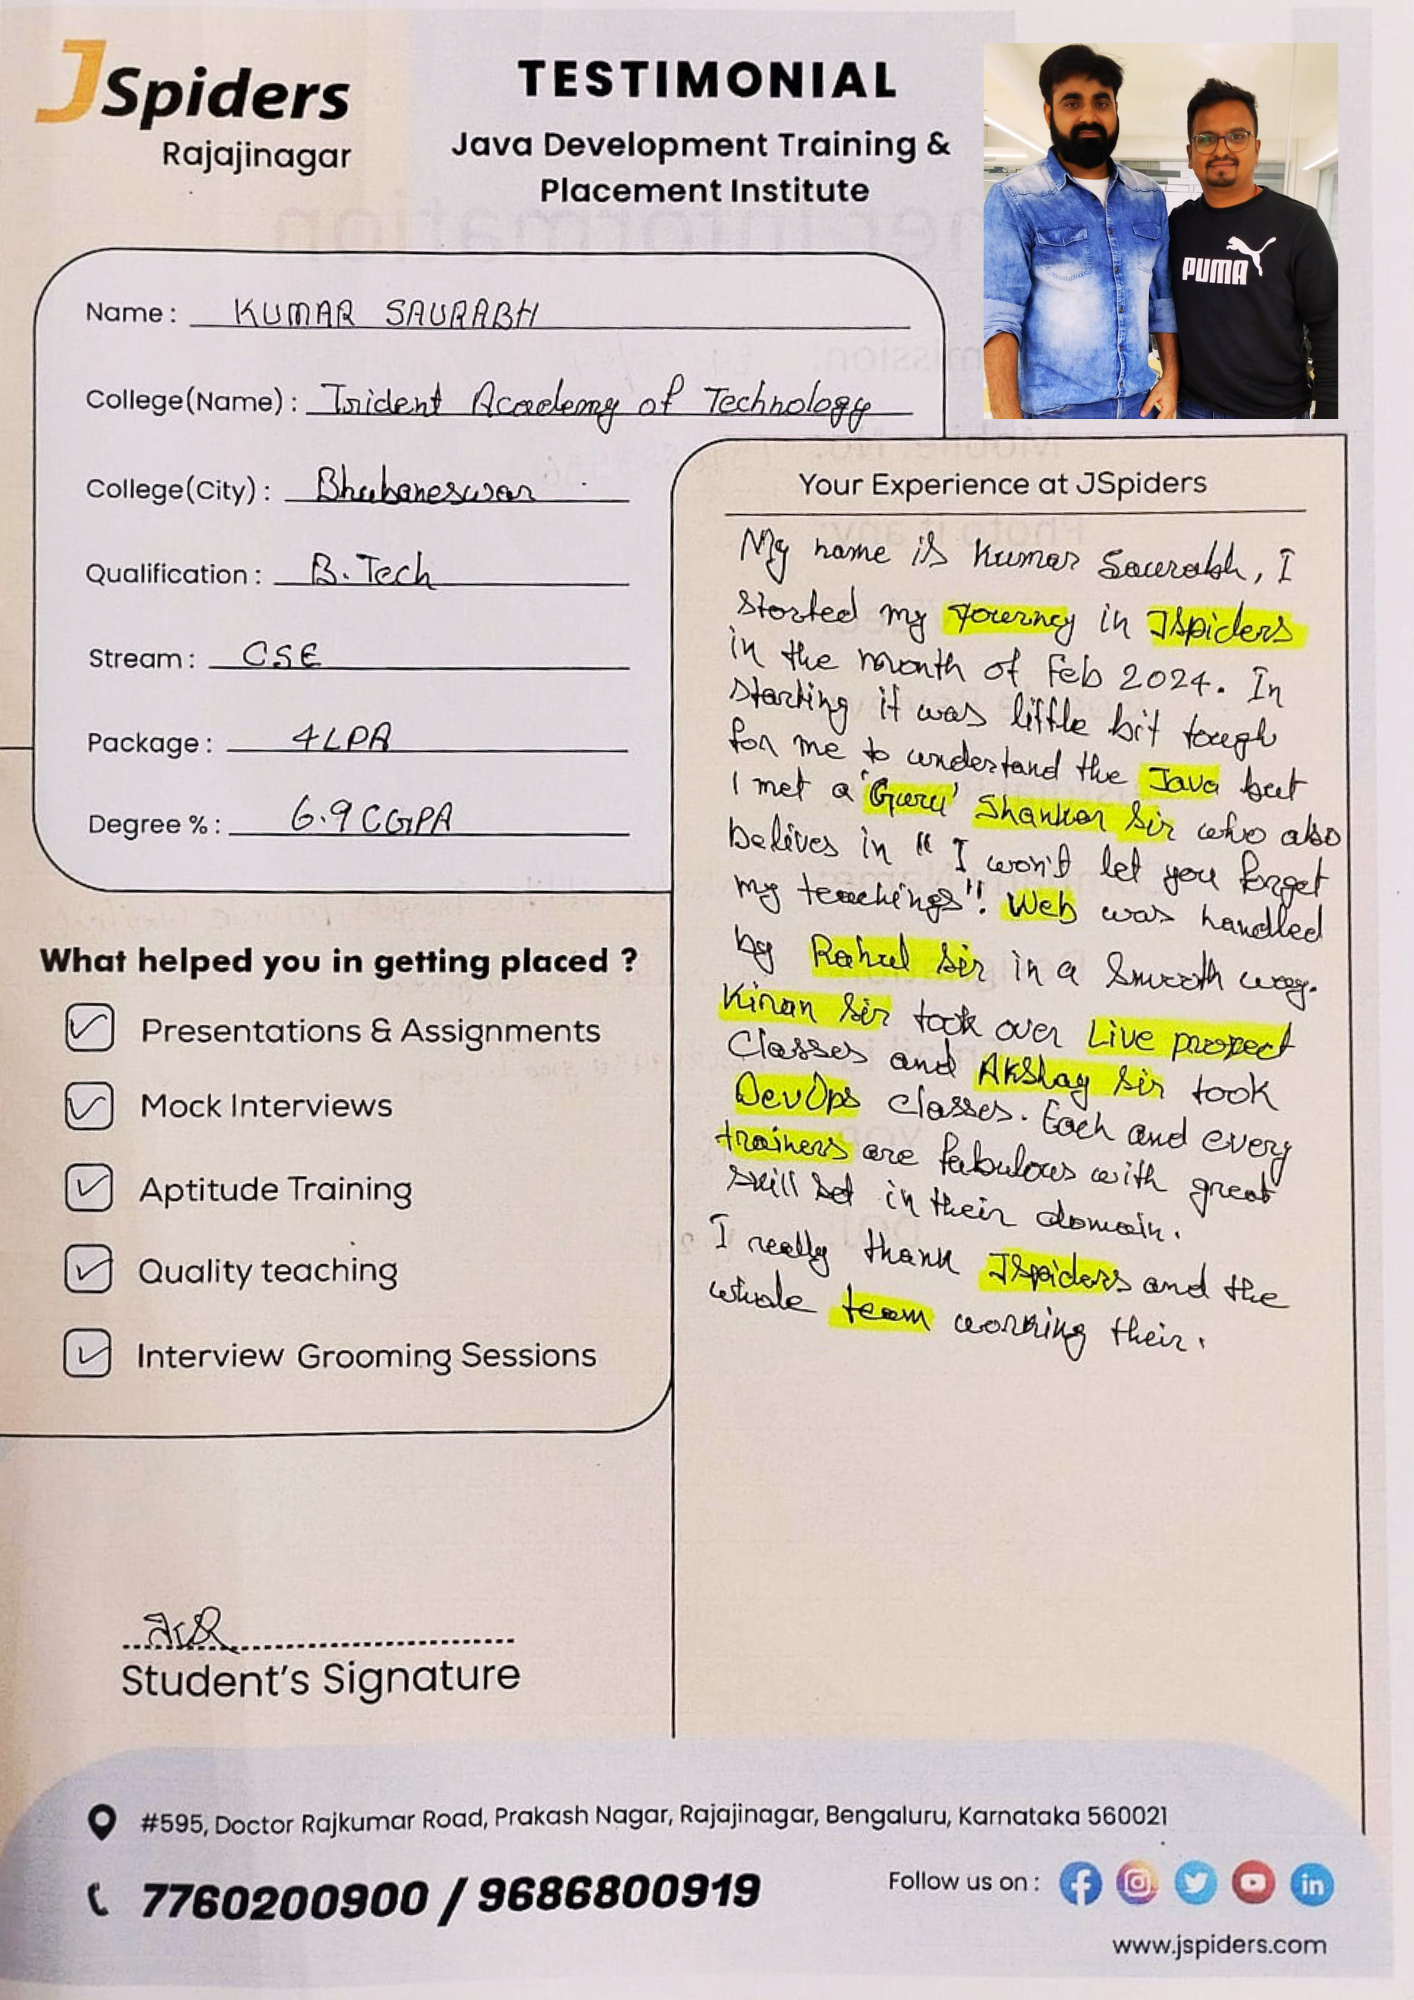 JSpiders
Rajajinagar
TESTIMONIAL
Java Development Training &
Placement Institute
PUMA
Name : KUMAR SAURABH
College(Name) : Trident Academy of Technology
College(City) : Bhubaneswar
Qualification : B.Tech
Stream : CSE
Package : 4LPA
Degree % : 6.9 CGPA
What helped you in getting placed ?
Presentations & Assignments
Mock Interviews
Aptitude Training
Quality teaching
Interview Grooming Sessions
Student's Signature
Your Experience at JSpiders
My name is Kumar Saurabh, I
started my journey in JSpiders
in the month of Feb 2024. In
starting it was little bit tough
for me to understand the Java but
I met a 'Guru' Shankar Sir who also
belives in " I won't let you forget
my teachings". Web was handled
by Rahul Sir in a smooth way.
Kiran Sir took over Live project
Classes and Akshay Sir took
DevOps classes. Each and every
trainers are fabulous with great
skill set in their domain.
I really thank JSpiders and the
whole team working their.
#595, Doctor Rajkumar Road, Prakash Nagar, Rajajinagar, Bengaluru, Karnataka 560021
7760200900 / 9686800919
Follow us on :
www.jspiders.com